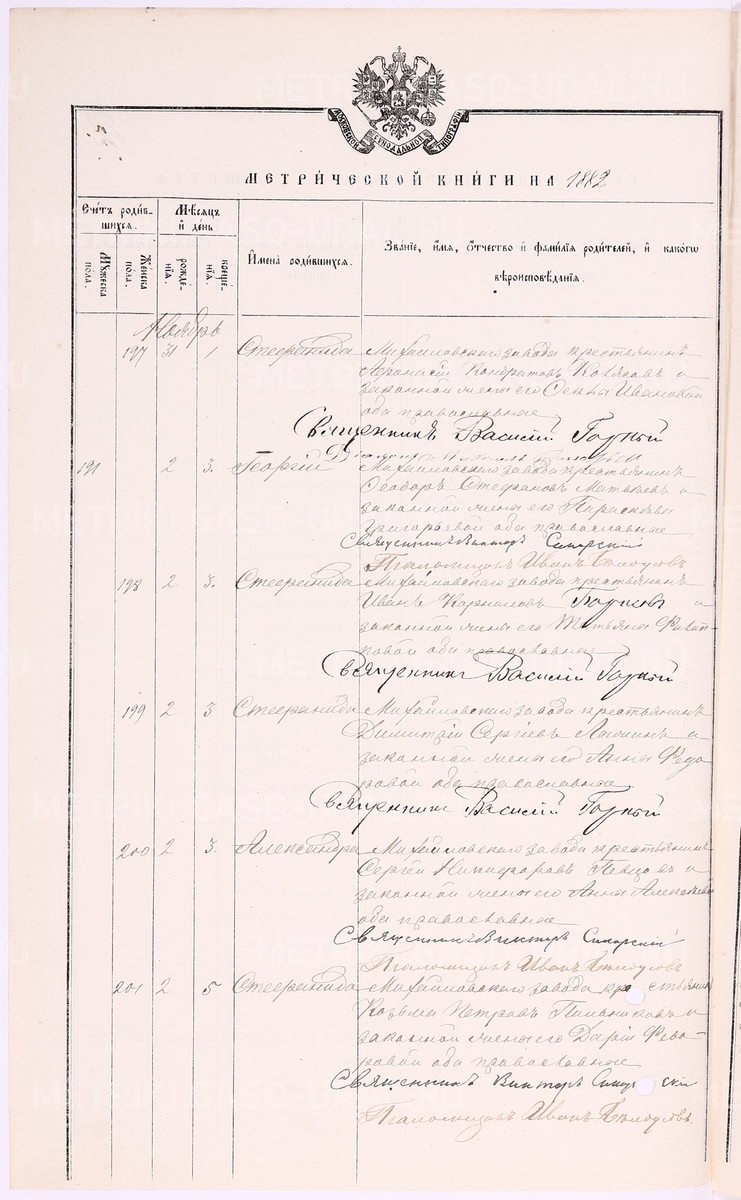 МОСКОВСКОЙ СѴНОДАЛЬНОЙ ТИПОГРАФІИ
МЕТРИ́ЧЕСКОЙ КНИ́ГИ НА 1882
Сче́тъ роди́в-
шихся.
Мѣ́сяцъ
и҆ де́нь
Мꙋ́жеска
по́ла.
Же́нска
по́ла.
рожде́-
нїѧ.
креще́-
нїѧ.
И҆мена̀ роди́вшихся.
Зва́нїе, и҆́мѧ, ѻ҆́тчество и҆ фами́лїѧ роди́телей, и҆ како́гѡ
вѣроисповѣ́данїѧ.
Ноябрь
197 31 1 Стефанида Михайловскаго завода крестьянинъ
Афонасій Кондратовъ и
законной жена его Ивановой
оба православные
Священникъ Василій Горный
191 2 3. Георгій Михайловскаго завода крестьянинъ
Феодоръ Стефановъ Матвѣевъ и
законной жена его Параскева
Григорьевой оба православные
Священникъ Викторъ Сикорскій
Псаломщикъ Иванъ Бѣлоусовъ
198 2 3. Стефанида Михайловскаго завода крестьянинъ
Иванъ Корниловъ Борисовъ и
законной жена его Татьяна Филип-
повой оба православные
Священникъ Василій Горный
199 2 3 Стефанида Михайловскаго завода крестьянинъ
Димитрій Сергіевъ и
законной жена его Анна Федо
ровой оба православные
Священникъ Василій Горный
200 2 3 Александра Михайловскаго завода крестьянинъ
Сергій Никифоровъ Певцовъ и
законной жена его Анна Алексѣевой
оба православные
Священникъ Викторъ Сикорскій
Псаломщикъ Иванъ Бѣлоусовъ
201 2 5 Стефанида Михайловскаго завода крестьянинъ
Козьма Петровъ Пильниковъ и
законной жена его Дарія Фео-
ровой оба православные
Священникъ Викторъ Сикорскій
Псаломщикъ Иванъ Бѣлоусовъ